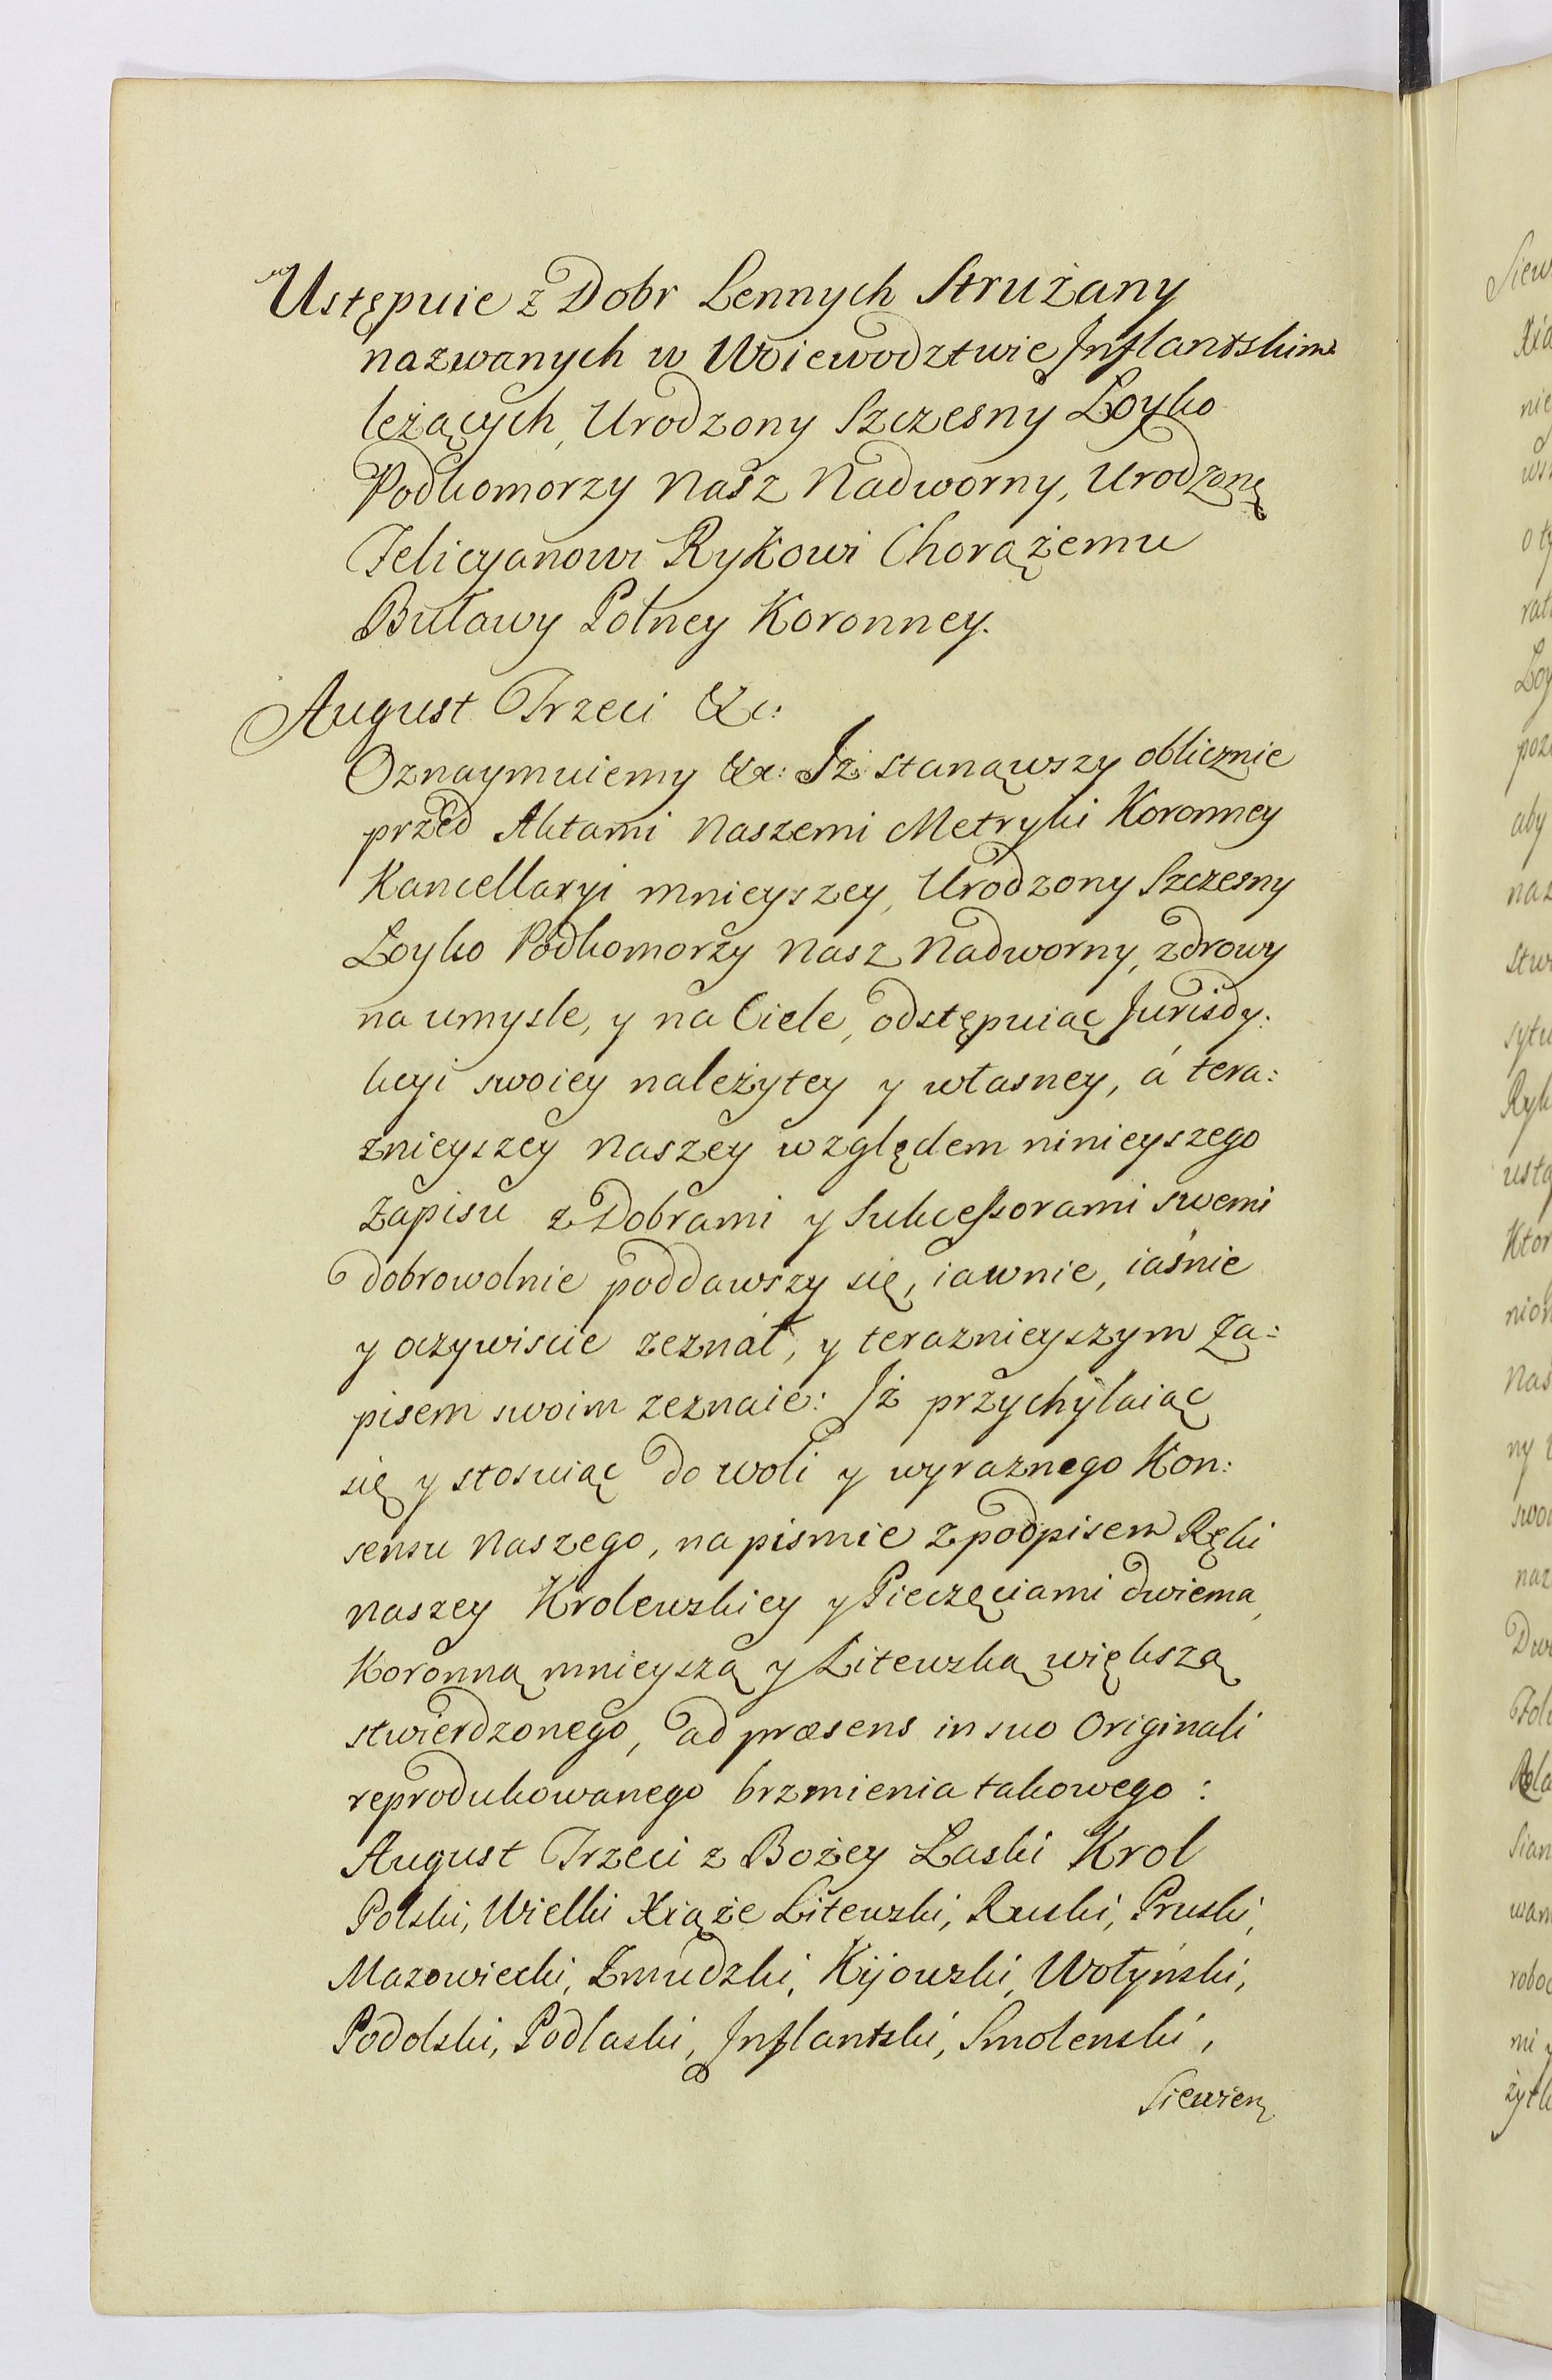 Ustępuie z Dobr Lennych Strużany
nazwanych w Woiewodztwie Inflantskim
leżących, Urodzony Szczesny Łoyko
Podkomorzy Nasz Nadworny, Urodzonę
Felicyanowi Rykowi Chorążemu
Buławy Polney Koronney.
August Trzeci &c:
Oznaymuiemy &c: Iż stanąwszy oblicznie
przed Aktami Naszemi Metryki Koronney
Kancellaryi mnieyszey, Urodzony Szczesny
Łoyko Podkomorzy Nasz Nadworny, zdrowy
na umysle, y na Ciele, odstępuiąc Jurisdy:
kcyi swoiey należytey y własney, á tera:
znieyszey Naszey względem ninieyszego
Zapisu z Dobrami y Sukcessorami swemi
dobrowolnie poddawszy się, iawnie, iaśnie
y oczywiscie zeznał, y teraznieyszym Za:
pisem swoim zeznaie: Iż przychylaiąc
się y stosuiąc do woli y wyraznego Kon:
sensu Naszego, na pismie z podpisem Ręki
Naszey Krolewskiey y Pieczęciami dwiema,
Koronną mnieyszą y Litewską większą
stwierdzonego, ad præsens in suo Originali
reprodukowanego brzmienia takowego:
August Trzeci z Bożey Łaski Krol
Polski, Wielki Xiąże Litewski, Ruski, Pruski,
Mazowiecki, Zmudzki, Kijowski, Wołyński,
Podolski, Podlaski, Inflantski, Smolenski,
Siewier